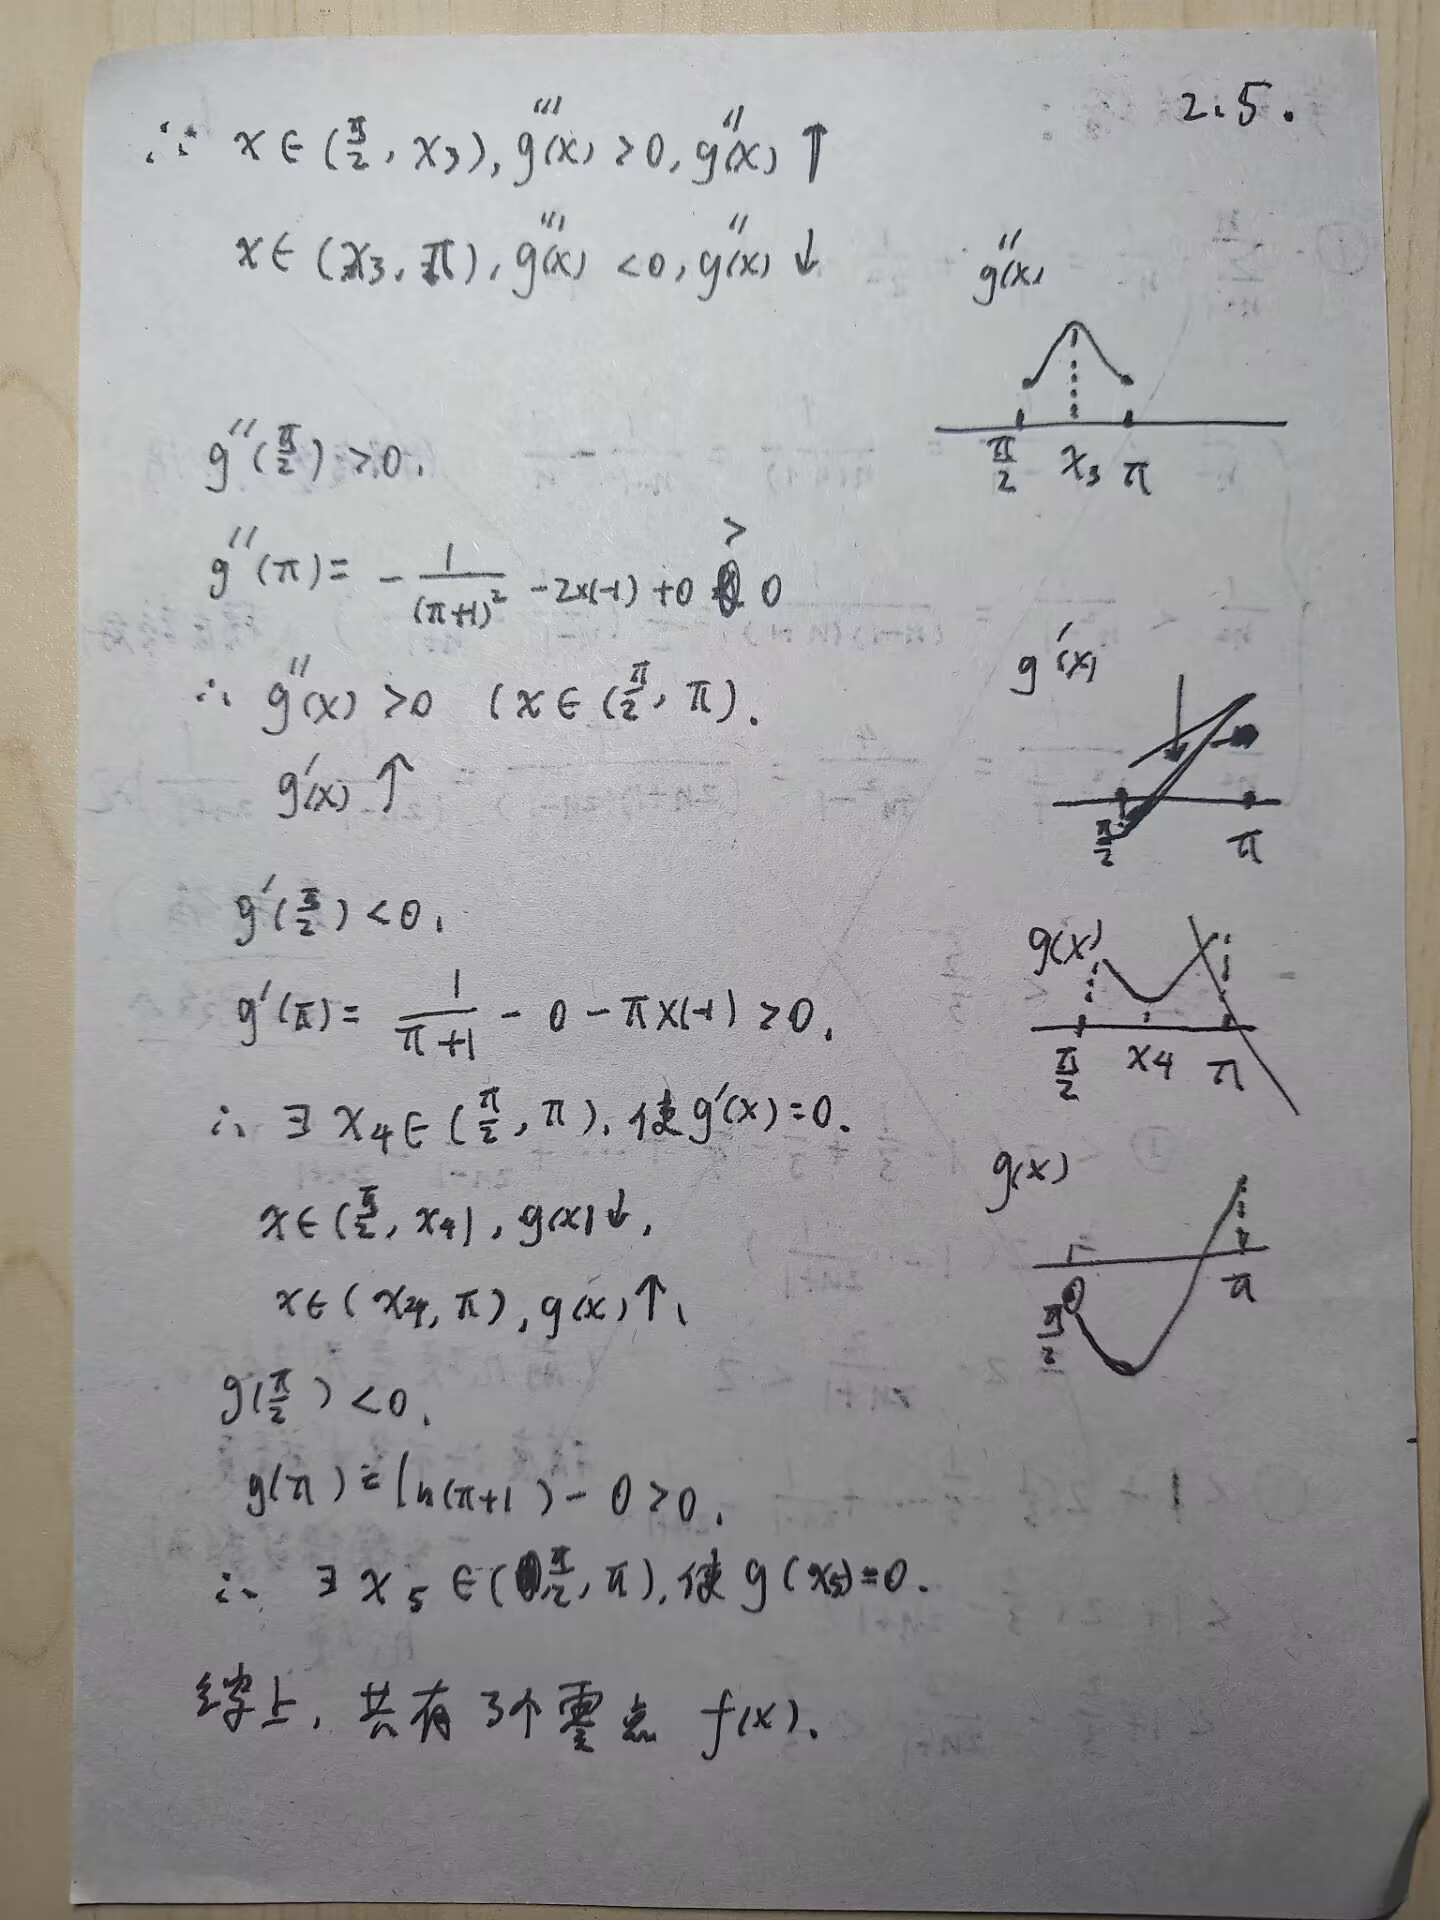 2.5.
∴ x∈(π/2, x₃), g'''(x)>0, g''(x)↑
x∈(x₃, π), g'''(x)<0, g''(x)↓
g''(x)
π/2 x₃ π
g''(π/2)>0.
g''(π)= -1/(π+1)² -2×(-1)+0 > 0
g'(x)
∴ g''(x)>0 (x∈(π/2, π).
g'(x)↑
π/2 π
g'(π/2)<0.
g(x)
g'(π)= 1/(π+1) - 0 - π×(-1)>0.
π/2 x₄ π
∴ ∃ x₄∈(π/2, π), 使g'(x)=0.
g(x)
x∈(π/2, x₄), g(x)↓.
π/2 π
x∈(x₄, π), g(x)↑.
g(π/2)<0.
g(π)=ln(π+1)-0>0.
∴ ∃ x₅∈(π/2, π), 使g(x₅)=0.
综上, 共有3个零点 f(x).